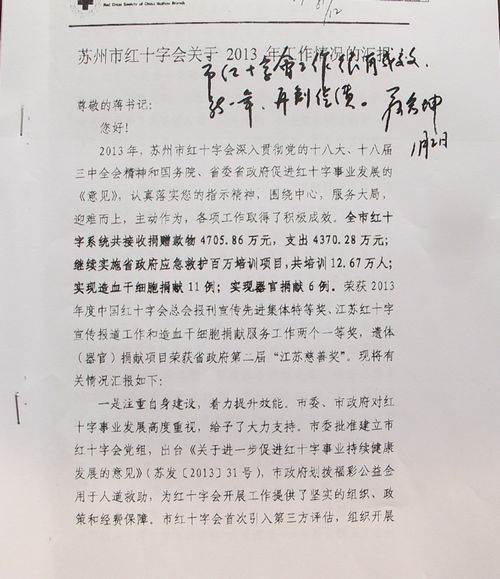 Red Cross Society of China Suzhou Branch
苏州市红十字会关于 2013 年工作情况的汇报
市红十字会工作很有成效,
新一年、再创佳绩。
1月2日
尊敬的蒋书记:
您好!
2013 年,苏州市红十字会深入贯彻党的十八大、十八届
三中全会精神和国务院、省委省政府促进红十字事业发展的
《意见》,认真落实您的指示精神,围绕中心,服务大局,
迎难而上,主动作为,各项工作取得了积极成效。全市红十
字系统共接收捐赠款物 4705.86 万元,支出 4370.28 万元;
继续实施省政府应急救护百万培训项目,共培训 12.67 万人;
实现造血干细胞捐献 11 例;实现器官捐献 6 例。荣获 2013
年度中国红十字会总会报刊宣传先进集体特等奖、江苏红十字
宣传报道工作和造血干细胞捐献服务工作两个一等奖,遗体
(器官)捐献项目荣获省政府第二届“江苏慈善奖”。现将有
关情况汇报如下:
一是注重自身建设,着力提升效能。市委、市政府对红
十字事业发展高度重视,给予了大力支持。市委批准建立市
红十字会党组,出台《关于进一步促进红十字事业持续健康
发展的意见》(苏发〔2013〕31 号),市政府划拨福彩公益金
用于人道救助,为红十字会开展工作提供了坚实的组织、政
策和经费保障。市红十字会首次引入第三方评估,组织开展